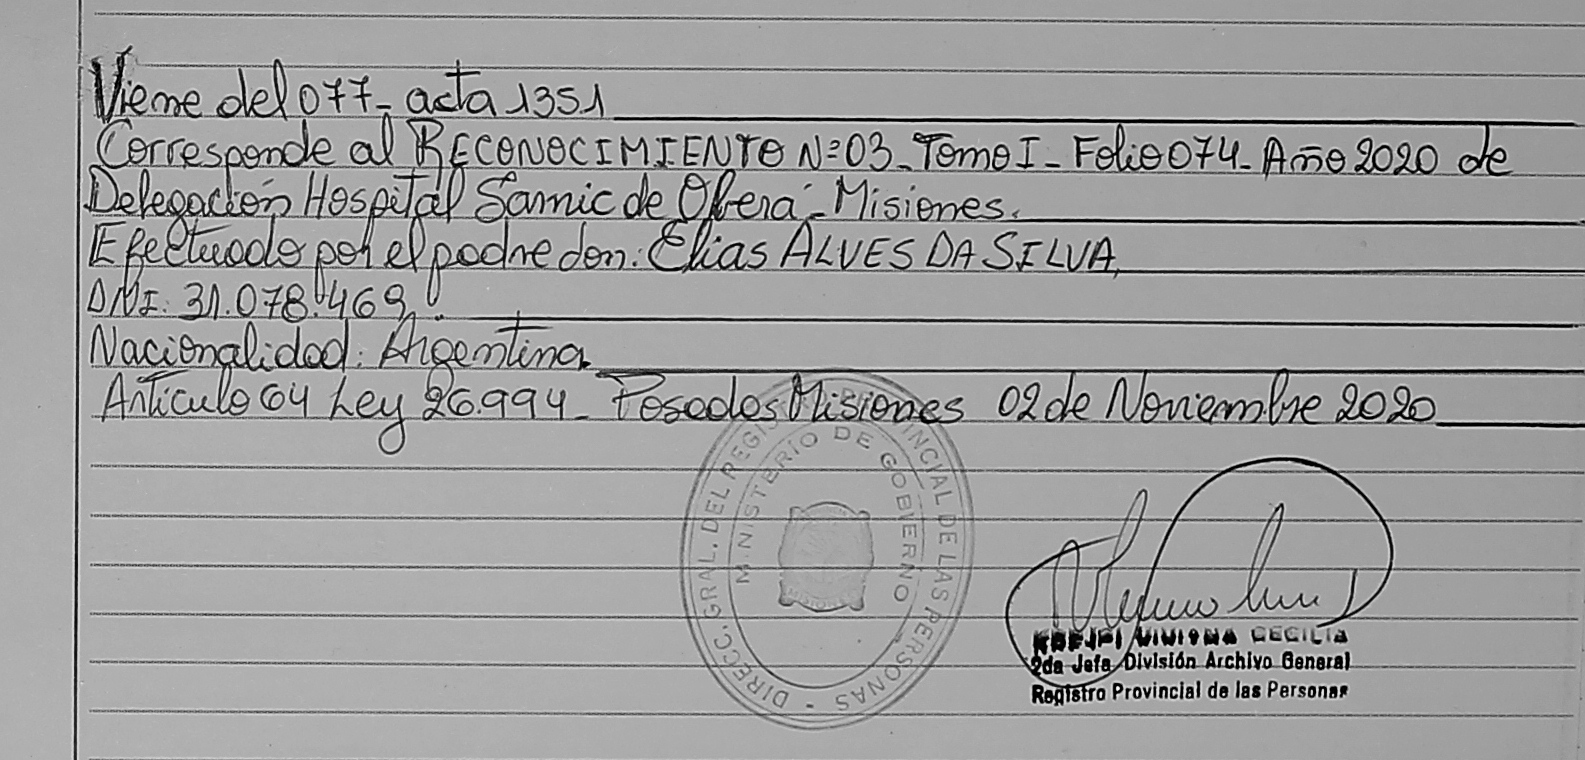 Viene del 077- acta 1351
Corresponde al RECONOCIMIENTO Nº03- Tomo I- Folio 074- Año 2020 de
Delegación Hospital Samic de Oberá- Misiones.
Efectuado por el padre don: Elias ALVES DA SILVA,
DNI: 31.078.469.
Nacionalidad: Argentina.
Artículo 64 Ley 26.994- Posadas Misiones 02 de Noviembre 2020
DIRECC. GRAL. DEL REGISTRO PROVINCIAL DE LAS PERSONAS -
MINISTERIO DE GOBIERNO
MISIONES
VIVIANA CECILIA
2da Jefa División Archivo General
Registro Provincial de las Personas